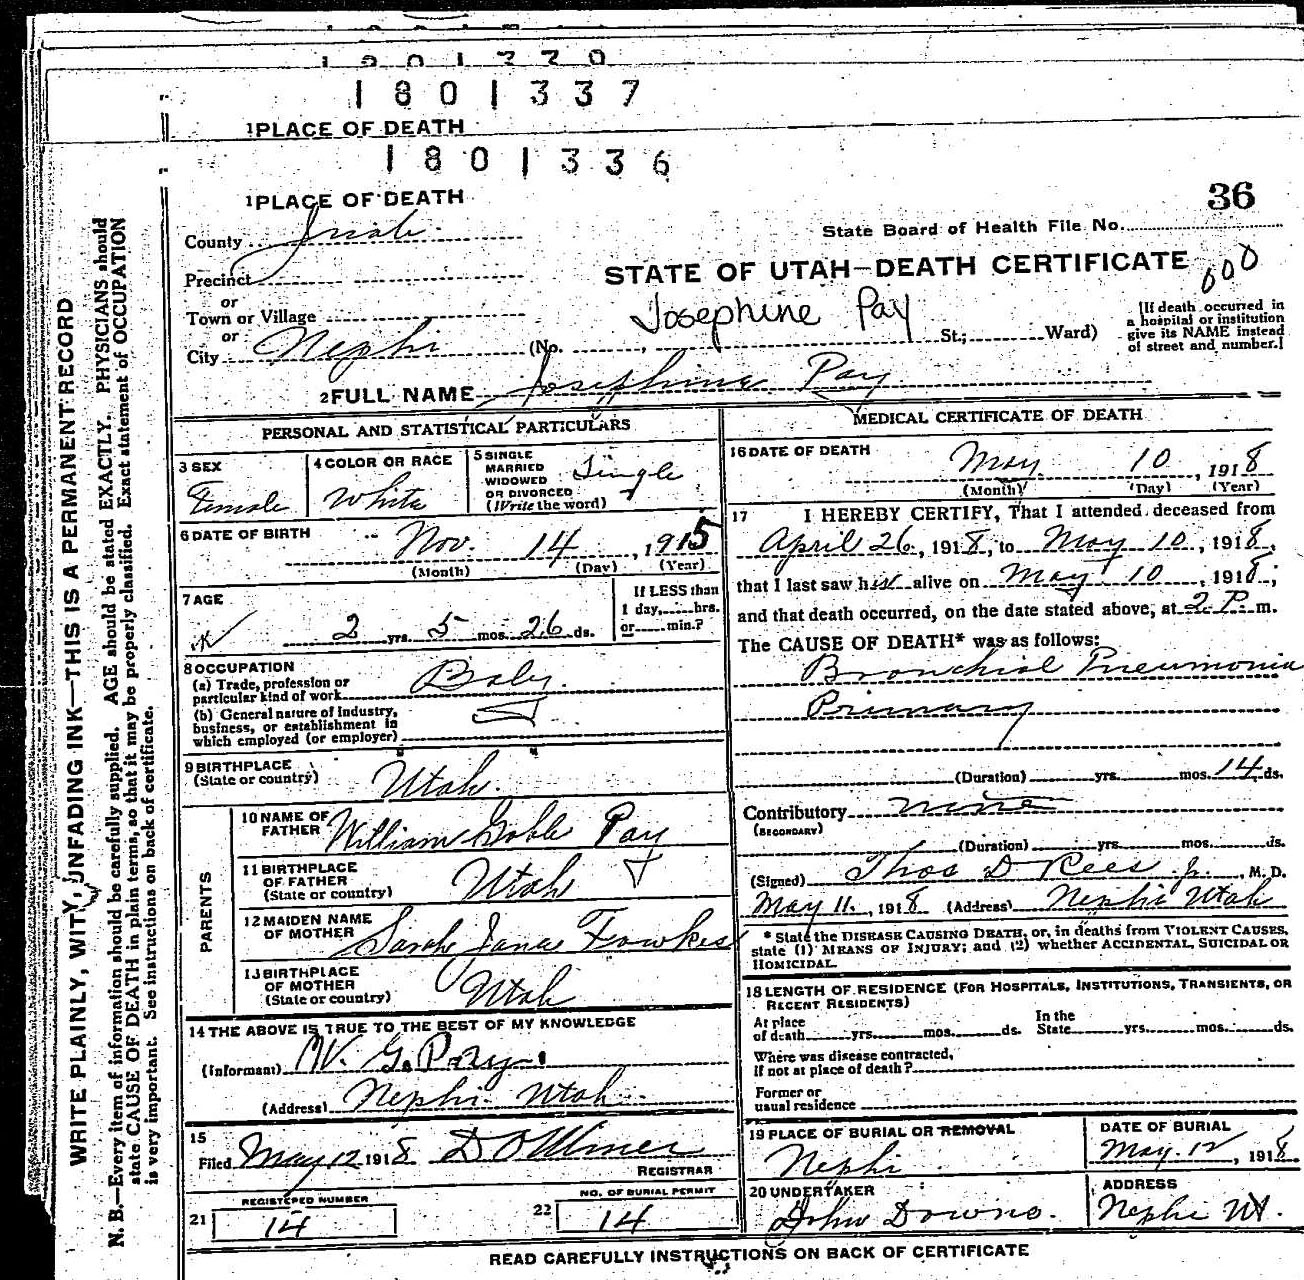 1801337
1PLACE OF DEATH
1801336
1PLACE OF DEATH
36
County Juab
State Board of Health File No.
Precinct
STATE OF UTAH—DEATH CERTIFICATE
600
or
Town or Village
Josephine Pay
or
City Nephi
(No. , St.; Ward)
[If death occurred in
a hospital or institution
give its NAME instead
of street and number.]
2FULL NAME Josephine Pay
PERSONAL AND STATISTICAL PARTICULARS
3 SEX
Female
4 COLOR OR RACE
White
5 SINGLE
MARRIED
WIDOWED
OR DIVORCED
(Write the word)
Single
6 DATE OF BIRTH
Nov. 14, 1915
(Month) (Day) (Year)
7 AGE
2 yrs. 5 mos. 26 ds.
If LESS than
1 day, hrs.
or min.?
8 OCCUPATION
(a) Trade, profession or
particular kind of work Baby.
(b) General nature of industry,
business, or establishment in
which employed (or employer)
9 BIRTHPLACE
(State or country) Utah.
PARENTS
10 NAME OF
FATHER William Goble Pay
11 BIRTHPLACE
OF FATHER
(State or country) Utah
12 MAIDEN NAME
OF MOTHER Sarah Jane Fowkes
13 BIRTHPLACE
OF MOTHER
(State or country) Utah
14 THE ABOVE IS TRUE TO THE BEST OF MY KNOWLEDGE
(Informant) W. G. Pay.
(Address) Nephi Utah.
15
Filed May 12 1918
REGISTRAR
21
REGISTERED NUMBER
14
22
NO. OF BURIAL PERMIT
14
MEDICAL CERTIFICATE OF DEATH
16 DATE OF DEATH
May 10, 1918
(Month) (Day) (Year)
17 I HEREBY CERTIFY, That I attended deceased from
April 26, 1918, to May 10, 1918,
that I last saw alive on May 10, 1918;
and that death occurred, on the date stated above, at 2 P. m.
The CAUSE OF DEATH* was as follows:
Bronchial Pneumonia
Primary
(Duration) yrs. mos. 14 ds.
Contributory none
(SECONDARY)
(Duration) yrs. mos. ds.
(Signed) Thos D Rees Jr., M. D.
May 11, 1918 (Address) Nephi Utah
* State the DISEASE CAUSING DEATH, or, in deaths from VIOLENT CAUSES,
state (1) MEANS OF INJURY; and (2) whether ACCIDENTAL, SUICIDAL OR
HOMICIDAL.
18 LENGTH OF RESIDENCE (FOR HOSPITALS, INSTITUTIONS, TRANSIENTS, OR
RECENT RESIDENTS)
At place
of death yrs. mos. ds.
In the
State yrs. mos. ds.
Where was disease contracted,
if not at place of death?
Former or
usual residence
19 PLACE OF BURIAL OR REMOVAL
Nephi
DATE OF BURIAL
May. 12, 1918
20 UNDERTAKER
John Downs.
ADDRESS
Nephi Ut.
READ CAREFULLY INSTRUCTIONS ON BACK OF CERTIFICATE
WRITE PLAINLY, WITH UNFADING INK—THIS IS A PERMANENT RECORD
N. B.—Every item of information should be carefully supplied. AGE should be stated EXACTLY. PHYSICIANS should
state CAUSE OF DEATH in plain terms, so that it may be properly classified. Exact statement of OCCUPATION
is very important. See instructions on back of certificate.